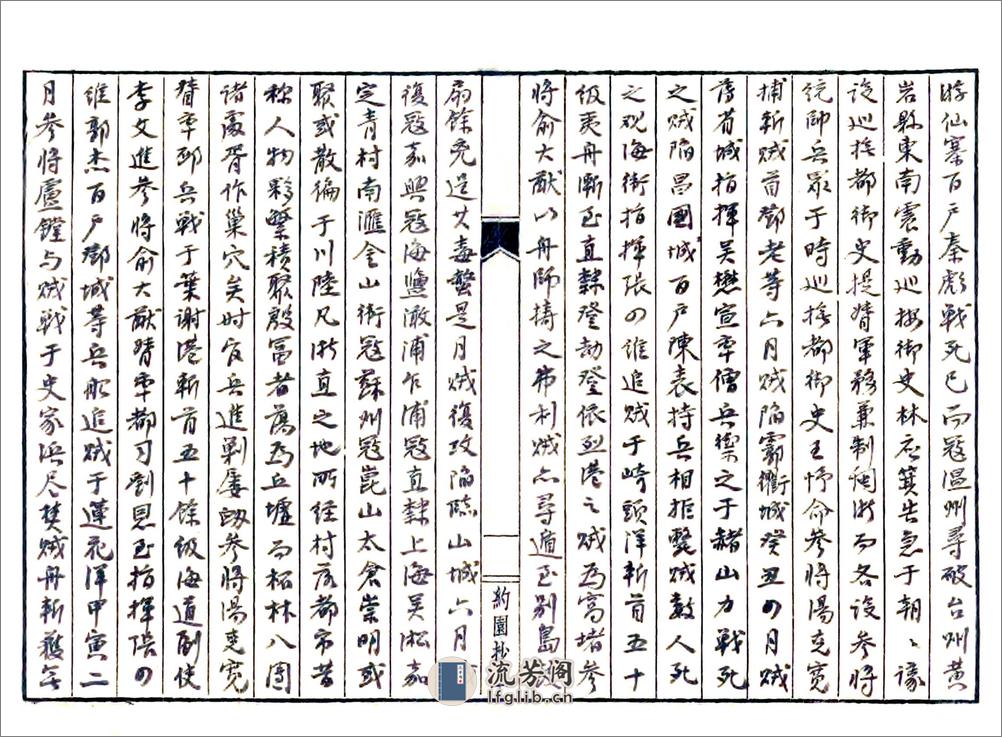 游仙寨百户秦彪戰死已而寇温州尋破台州黄
岩縣東南震動巡按御史林应箕告急于朝〻議
設巡撫都御史提督軍務兼制闽浙而各設參將
统帥兵眾于時巡撫都御史王忬命參將湯克寬
捕斬贼首鄧老等六月贼陷霩衢城癸丑四月贼
薄省城指揮吴懋宣率僧兵禦之于赭山力戰死
之贼陷昌國城百户陳表持兵相拒斃贼数人死
之观海衛指揮張四維追贼于崎頭洋斬首五十
级夷舟漸至直隸登劫登依烈港之贼為窩堵參
將俞大猷以舟師擣之弗利贼亦寻遁至别島
扇餘党逞其毒螫是月贼復攻陷臨山城六月
復寇嘉興寇海鹽澉浦乍浦寇直隸上海吴淞嘉
定青村南滙金山衛寇蘇州寇崑山太倉崇明或
聚或散徧于川陸凡浙直之地所经村落都市昔
称人物夥繁積聚殷富者蕩為丘墟而柘林八團
诸處胥作巢穴矣时官兵進剿屡衂參將湯克寬
督率邳兵戰于葉谢港斬首五十餘级海道副使
李文進參將俞大猷督率都司劉恩至指揮張四
維郭杰百户鄧城等兵船追贼于蓮花洋甲寅二
月參將盧鏜与贼戰于史家浜尽焚贼舟斬獲无
約園抄
流芳阁
lfglib.cn